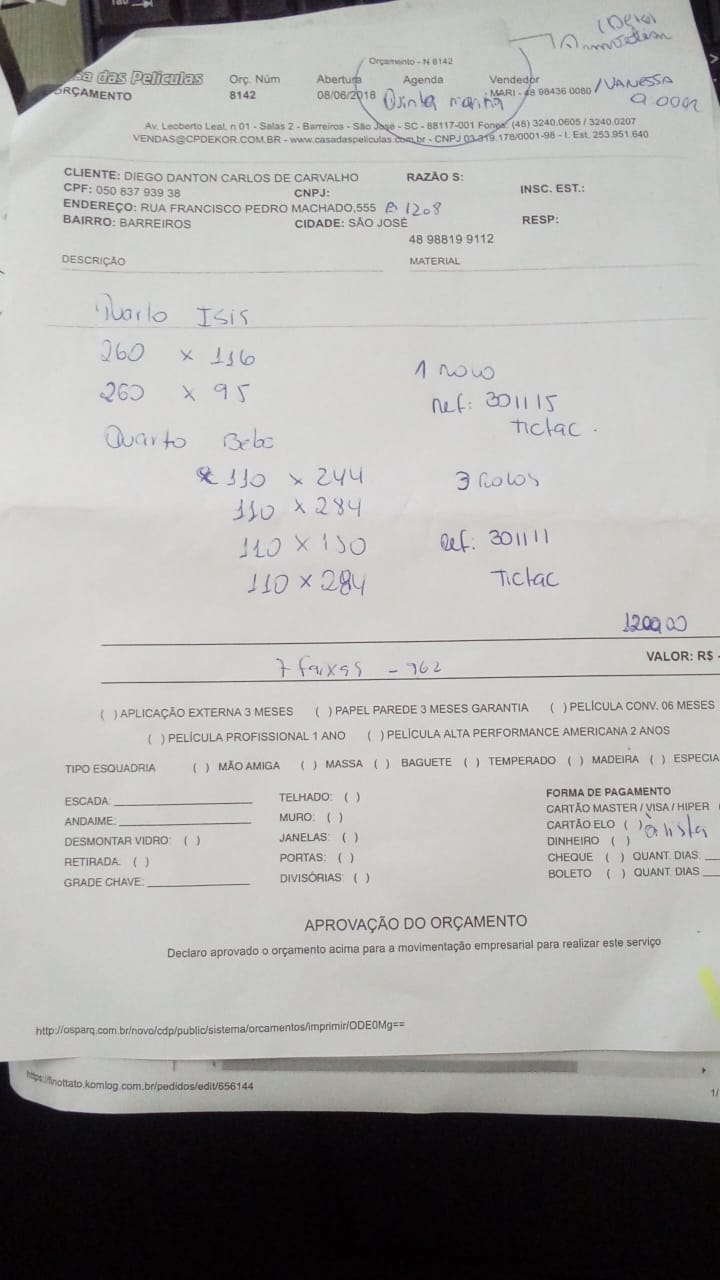 Orçamento - N 8142
sa das Películas
ORÇAMENTO
Orç. Núm
8142
Abertura
08/06/2018
Agenda
Quinta manhã
Vendedor
MARI - 48 98436 0080 / VANESSA
9:00
Av. Leoberto Leal, n 01 - Salas 2 - Barreiros - São José - SC - 88117-001 Fones: (48) 3240.0605 / 3240.0207
VENDAS@CPDEKOR.COM.BR - www.casadaspeliculas.com.br - CNPJ 03.319.178/0001-98 - I. Est. 253.951.640
CLIENTE: DIEGO DANTON CARLOS DE CARVALHO RAZÃO S:
CPF: 050 837 939 38 CNPJ: INSC. EST.:
ENDEREÇO: RUA FRANCISCO PEDRO MACHADO,555 B 1208
BAIRRO: BARREIROS CIDADE: SÃO JOSÉ RESP:
48 98819 9112
DESCRIÇÃO MATERIAL
Quarto Isis
260 x 116
1 rolo
260 x 95
Ref: 301115
Tictac.
Quarto Bebe
110 x 244 3 rolos
110 x 284
110 x 150 Ref: 301111
110 x 284 Tictac
1200,00
VALOR: R$
7 faixas - 962
( ) APLICAÇÃO EXTERNA 3 MESES ( ) PAPEL PAREDE 3 MESES GARANTIA ( ) PELÍCULA CONV. 06 MESES
( ) PELÍCULA PROFISSIONAL 1 ANO ( ) PELÍCULA ALTA PERFORMANCE AMERICANA 2 ANOS
TIPO ESQUADRIA ( ) MÃO AMIGA ( ) MASSA ( ) BAGUETE ( ) TEMPERADO ( ) MADEIRA ( ) ESPECIA
ESCADA: TELHADO: ( ) FORMA DE PAGAMENTO
ANDAIME: MURO: ( ) CARTÃO MASTER / VISA / HIPER (
DESMONTAR VIDRO: ( ) JANELAS: ( ) CARTÃO ELO ( ) à vista
RETIRADA: ( ) PORTAS: ( ) DINHEIRO ( )
GRADE CHAVE: DIVISÓRIAS: ( ) CHEQUE ( ) QUANT. DIAS.
BOLETO ( ) QUANT. DIAS
APROVAÇÃO DO ORÇAMENTO
Declaro aprovado o orçamento acima para a movimentação empresarial para realizar este serviço
http://osparq.com.br/novo/cdp/public/sistema/orcamentos/imprimir/ODE0Mg==
https://finottato.komlog.com.br/pedidos/edit/656144
1/